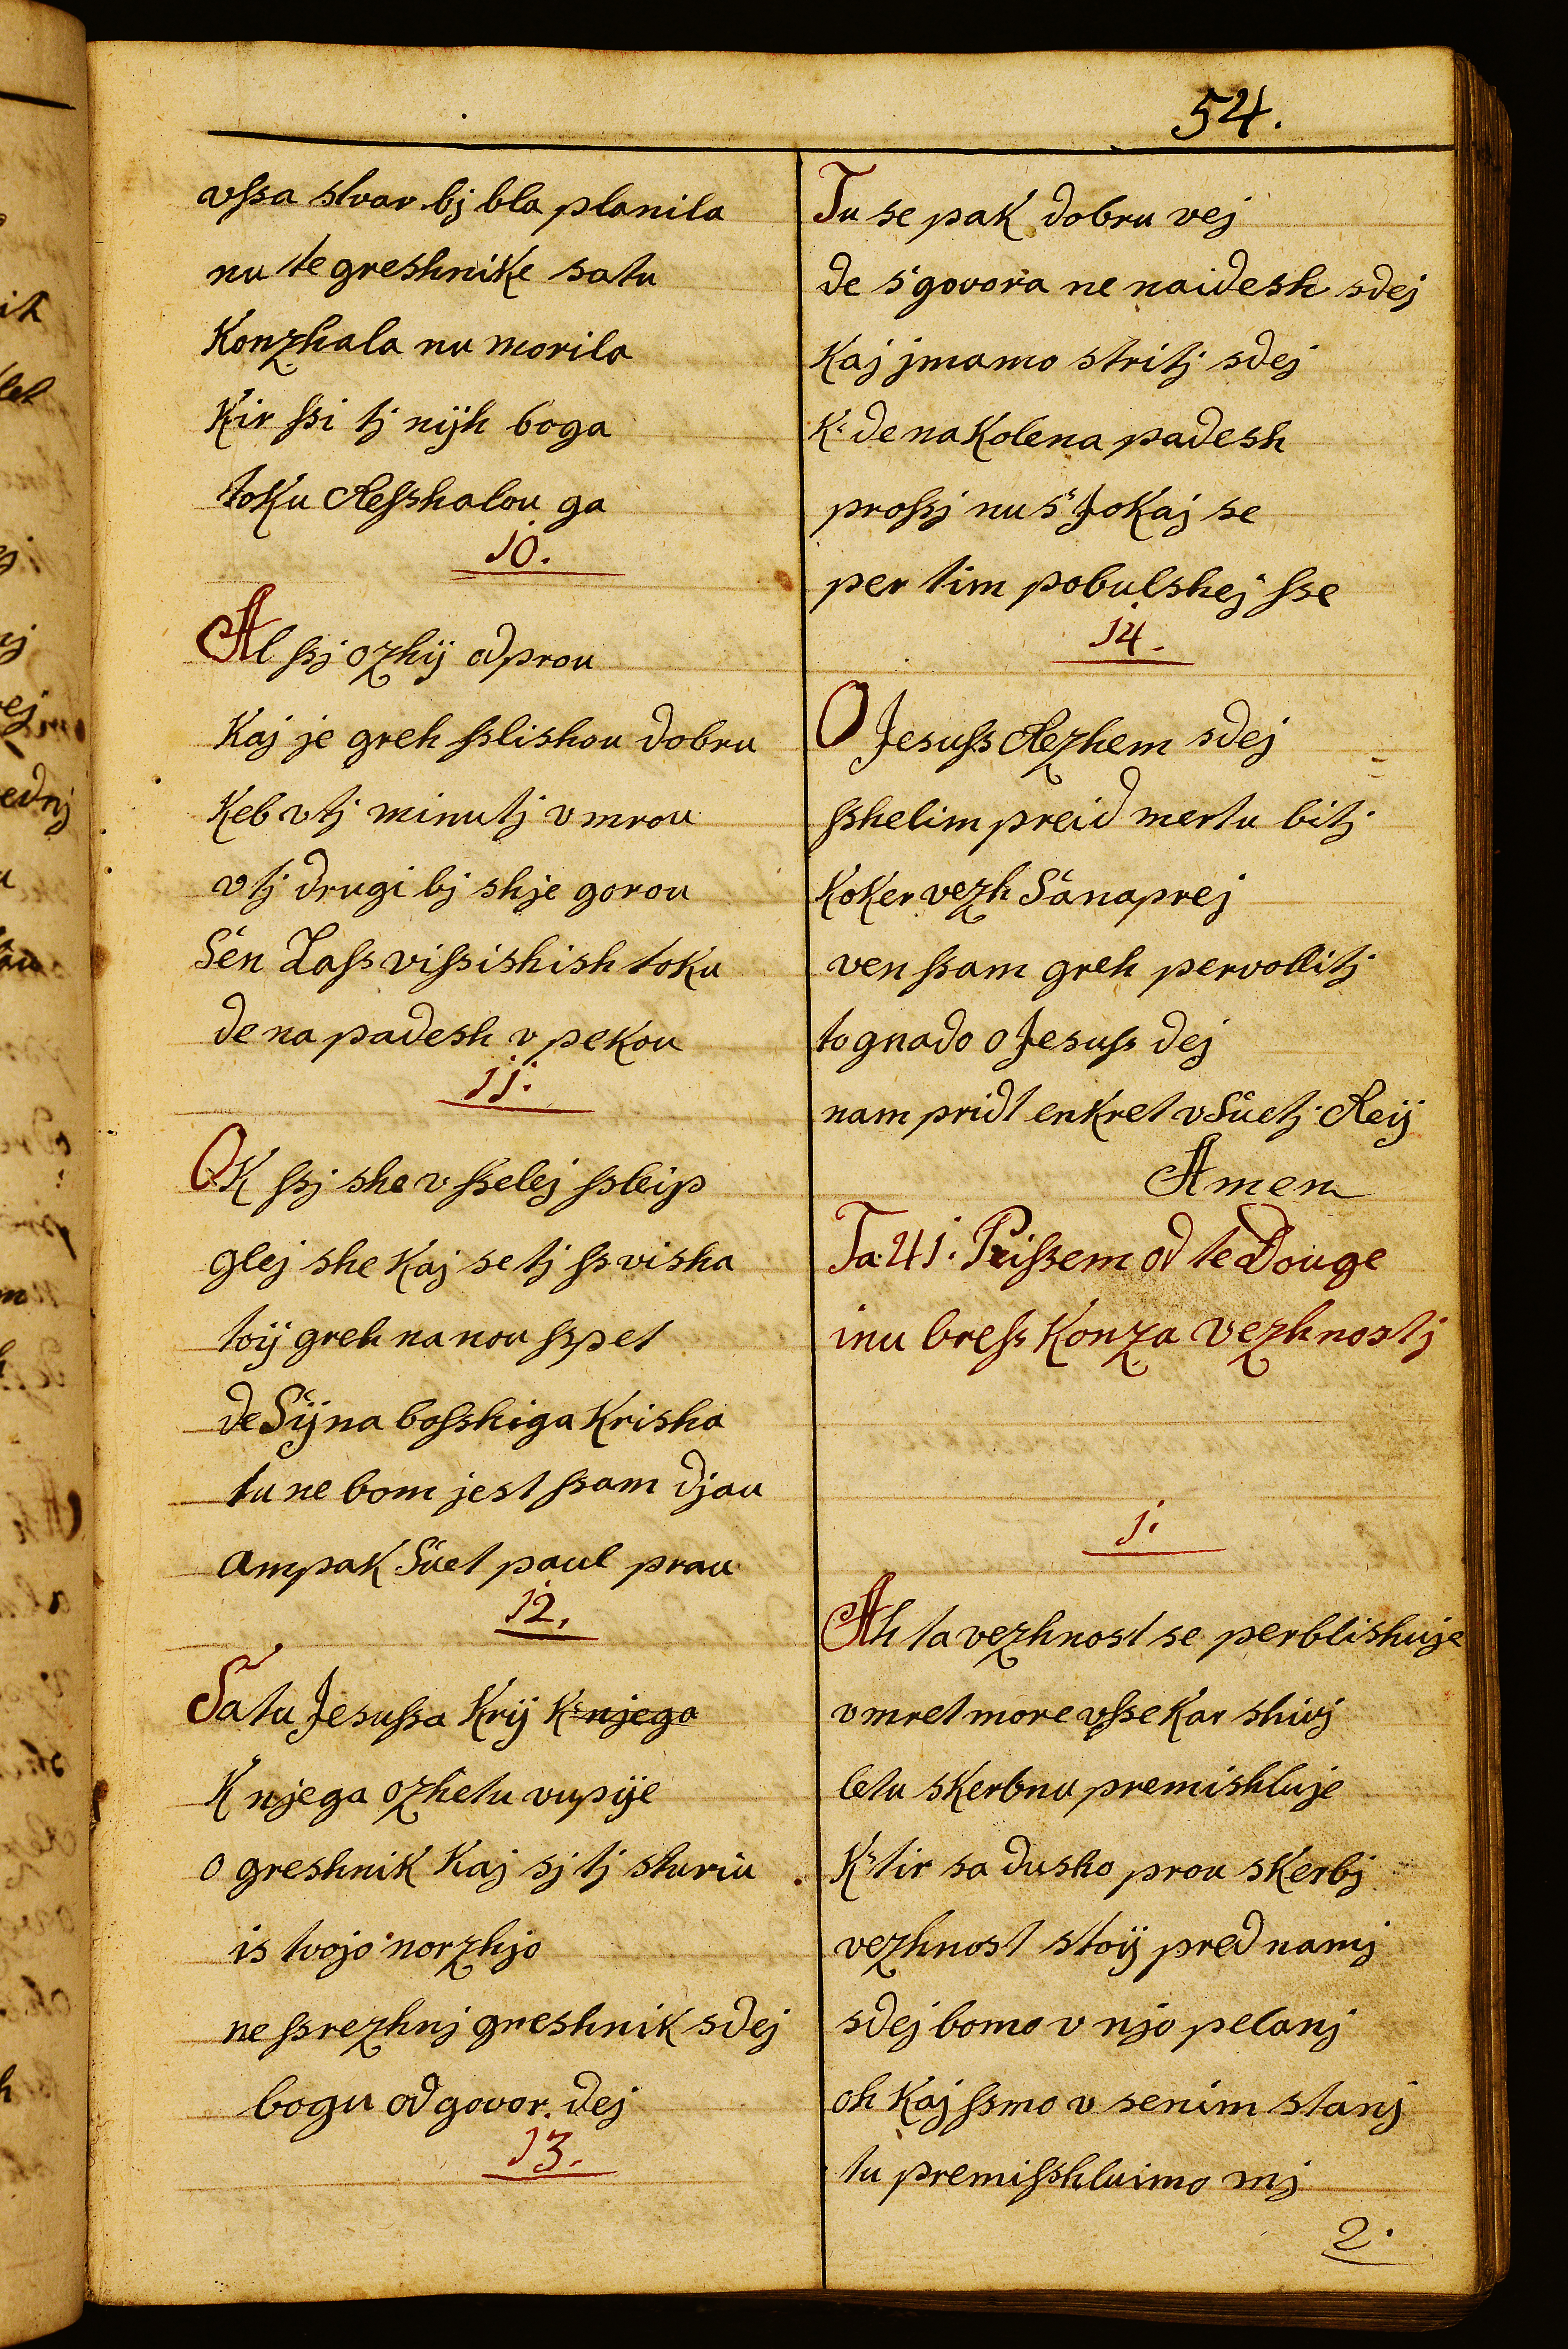 54.
vſsa stvar bj bla planila
nu te greshnike satu
Konzhala nu morila
Kir ſsi tj nijh boga
toku Reſshalou ga
10.
Al ſsj ozhij odprou
Kaj je greh ſslishou dobru
Keb vtj minutj vmrou
vtj drugi bj shje gorou
Sén Zaſs viſsishish toku
de na padesh v pekou
11.
OK ſsj she v ſselej ſsleip
glej she Kaj se tj ſsvisha
toij greh na nou ſspet
de Sijna boſshiga Krisha
tu ne bom jest ſsam djau
ampak Suet paul prau
12.
Satu Jesuſsa Krij K njega
K njega ozhetu vupije
o greshnik Kaj sj tj sturiu
is tvojo norzhjo
ne ſsrezhnj greshnik sdej
bogu odgovor dej
13.
Tu se pak dobru vej
de s'govora ne naidesh sdej
Kaj jmamo stritj sdej
K' de na Kolena padesh
proſsj nu s' Jokaj se
per tim pobulshej ſse
14.
O Jesuſs Rezhem sdej
ſshelim preid mertu bitj
Koker vezh Sanaprej
ven ſsam greh pervollitj
to gnado o Jesuſs dej
nam pridt enkret v Suetj Reij
Amen
Ta 41. Peiſsem od te Douge
inu breſs Konza vezhnostj
1.
Ah ta vezhnost se perblishuje
vmret more vſse Kar shivj
letu skerbnu premishluje
K'tir sa dusho prou skerbj
vezhnost stoij pred namj
sdej bomo v njo pelanj
oh Kaj ſsmo v senim stanj
tu premiſshluimo mj
2.